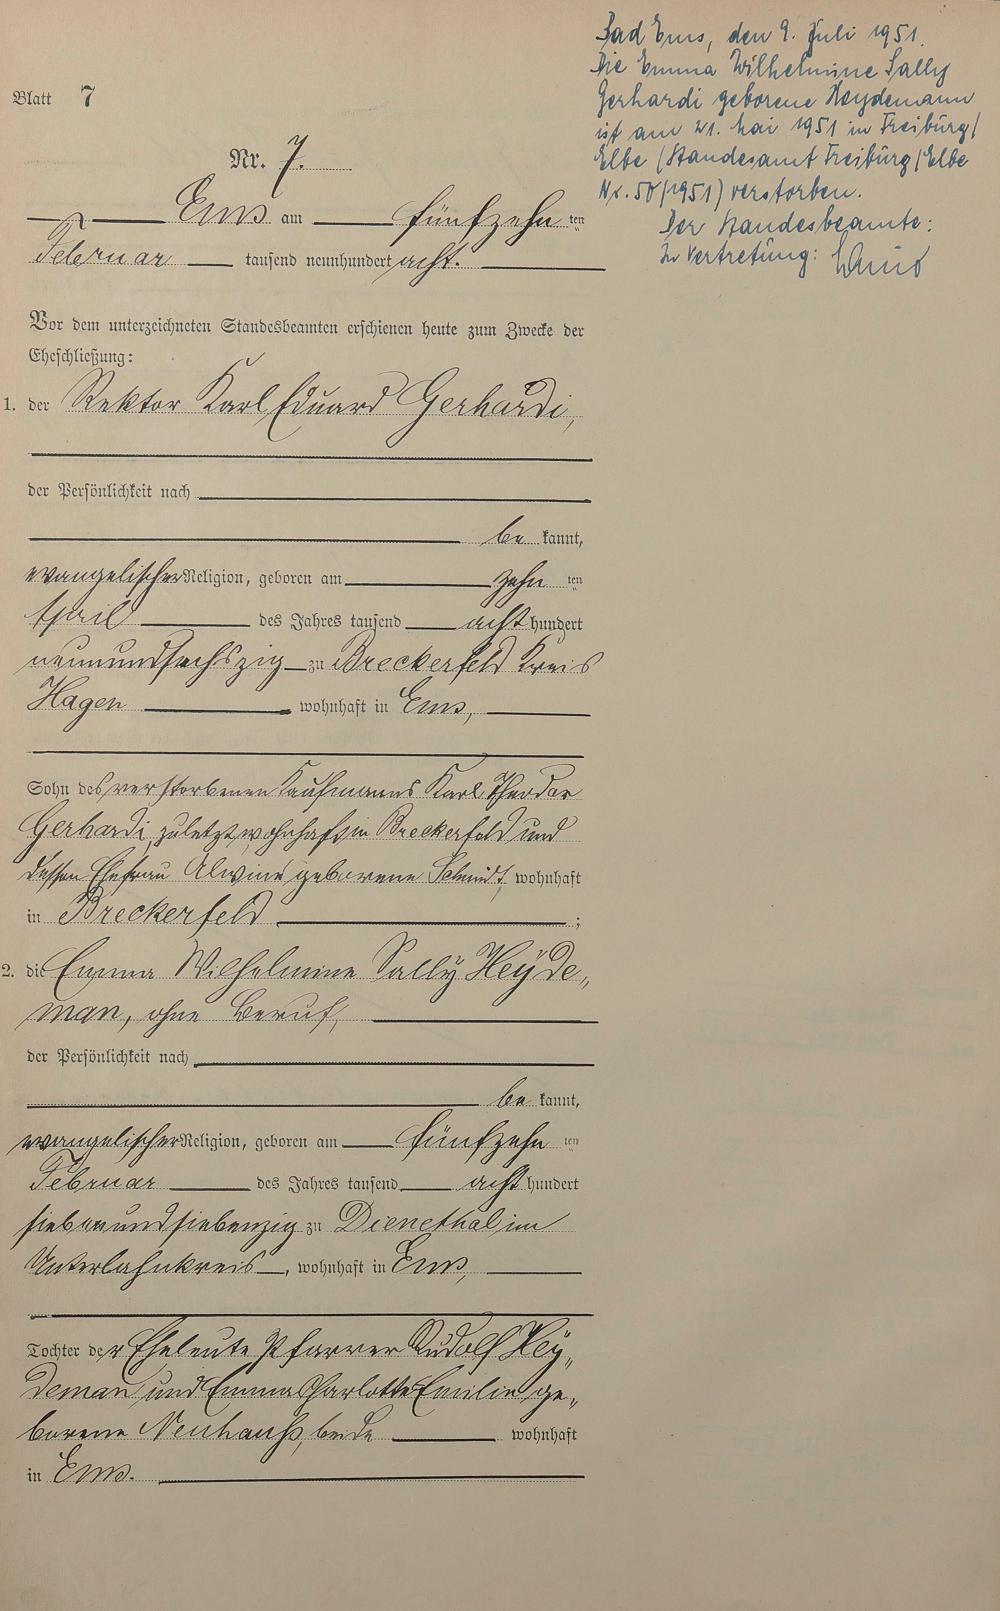 Blatt 7
Nr. 7.
Ems am fünfzehn ten
Februar tausend neunhundert acht.
Vor dem unterzeichneten Standesbeamten erschienen heute zum Zwecke der
Eheschließung:
1. der Rektor Karl Eduard Gerhardi,
der Persönlichkeit nach
be kannt,
evangelischer Religion, geboren am zehn ten
April des Jahres tausend acht hundert
neunundsechszig zu Breckerfeld Kreis
Hagen wohnhaft in Ems,
Sohn des verstorbenen Kaufmanns Karl Theodor
Gerhardi, zuletzt wohnhaft in Breckerfeld und
dessen Ehefrau Alwine geborene Schmidt, wohnhaft
in Breckerfeld ;
2. die Emma Wilhelmine Sally Heyde„
man, ohne Beruf,
der Persönlichkeit nach
be kannt,
evangelischer Religion, geboren am fünfzehn ten
Februar des Jahres tausend acht hundert
siebenundsiebenzig zu Dienethal im
Unterlahnkreis , wohnhaft in Ems,
Tochter der Eheleute Pfarrer Rudolf Hey„
deman und Emma Charlotte Emilie ge„
borene Neuhauß, beide wohnhaft
in Ems.
Bad Ems, den 9. Juli 1951.
Die Emma Wilhelmine Sally
Gerhardi geborene Heydemann
ist am 21. Mai 1951 in Freiburg/
Elbe (Standesamt Freiburg/Elbe
Nr. 50/1951) verstorben.
Der Standesbeamte:
In Vertretung: